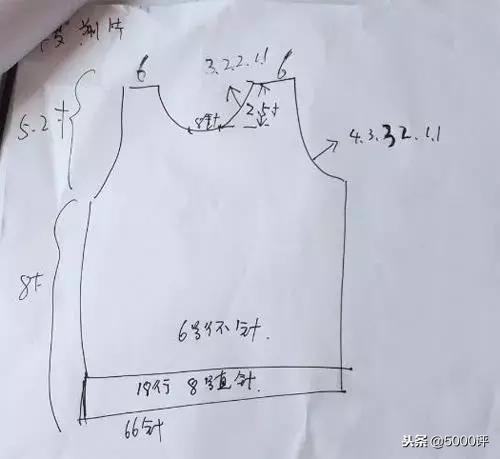 前片
6
3.2.2.1.1
6
5.2寸
8针
2.5寸
4.3.3.2.1.1
8寸
6号环针
18行 8号直针
66针
头条 @5000评